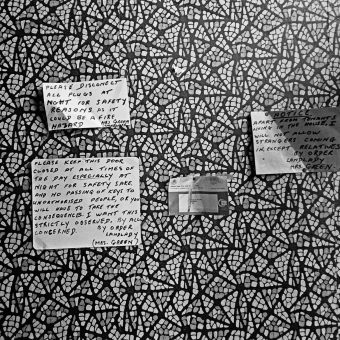 PLEASE DISCONECT
ALL PLUGS AT
NIGHT FOR SAFETY
REASONS, AS IT
COULD BE A FIRE
HAZARD MRS. GREEN
PLEASE KEEP THIS DOOR
CLOSED AT ALL TIMES OF
THE DAY ESPECIALLY AT
NIGHT FOR SAFETY SAKE
AND NO PASSING OF KEYS TO
UNAUTHORISED PEOPLE, OR YOU
WILL HAVE TO TAKE THE
CONSEQUENCES. I WANT THIS
STRICTLY OBSERVED, BY ALL
CONCERNED. BY ORDER
LANDLADY
(MRS. GREEN)
NOTICE
APART FROM TENANTS
IN THE HOUSE, I
WILL NOT ALLOW
STRANGERS COMING
IN EXCEPT RELATIVES
BY ORDER
LANDLADY
MRS. GREEN.